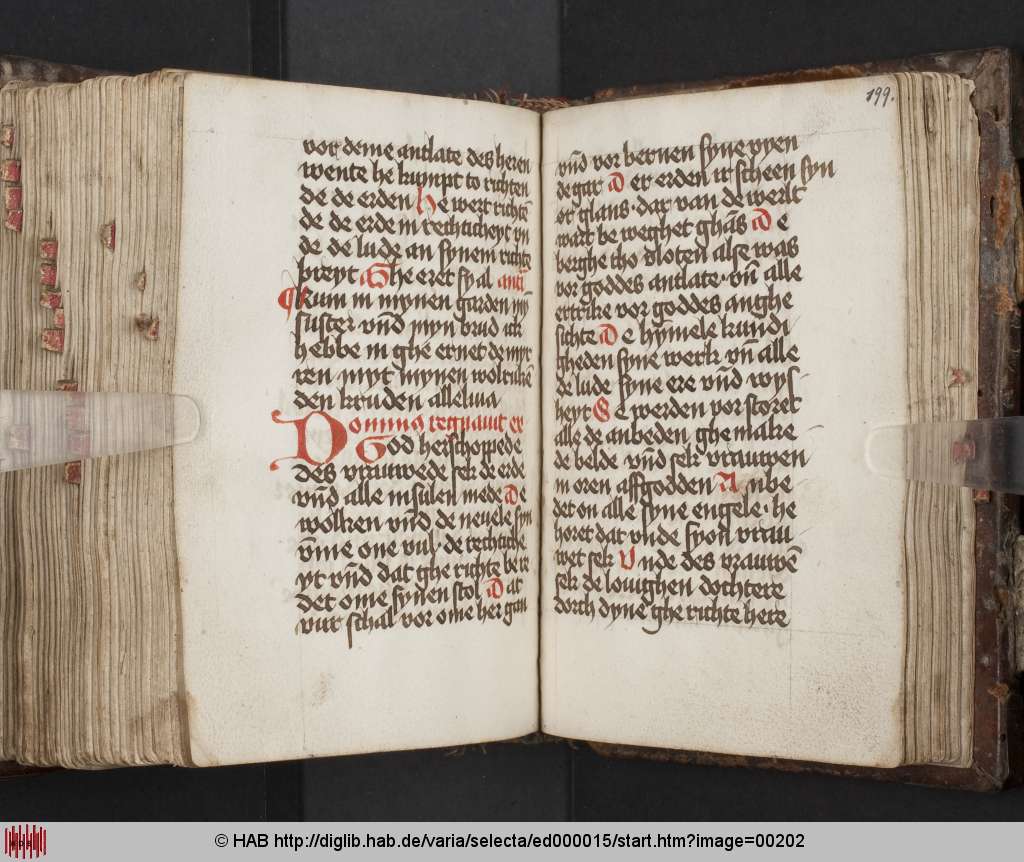 vor deme antlate des heren
wente he kumpt to richten
de de erden he wert richtē
de de erde in rechticheyt vn
de de lude an synem richte
breyt Ghe eret sy al anti
kum in mynen garden my
suster vn̄d myn brud ick
hebbe in ghe ernet de myr
ren myt mynen wolrukēn
den kruden alleluia
Dominus regnavit ex
God herschoppede
des vrauwede sek de erde
vn̄d alle insulen mede De
wolken vn̄d de nevele syn
vm̄e one vul de rechtiche
yt vn̄d dat ghe richte be re
det ome synen stol Dat
vur schal vor ome her gan
199.
vn̄d vor bernen syne vyen
de gar De er erden irscheen syn
er glans dar van de werlt
wart be weghet ghās De
berghe tho vloten alse was
vor goddes antlate vn̄ alle
ertrike vor goddes anghe
sichte De hymele kundi
gheden syne werk vn̄ alle
de lude syne ere vn̄d wys
heyt Se werden vorstoret
alle de anbeden ghe makte
de belde vn̄d sek vrauwen
in oren affgodden Anbe
det on alle syne engele he
horet dat vnde syon vrau
wet sek Vnde des vrauwē
sek de louighen dochtere
dorch dyne ghe richte here
© HAB http://diglib.hab.de/varia/selecta/ed000015/start.htm?image=00202